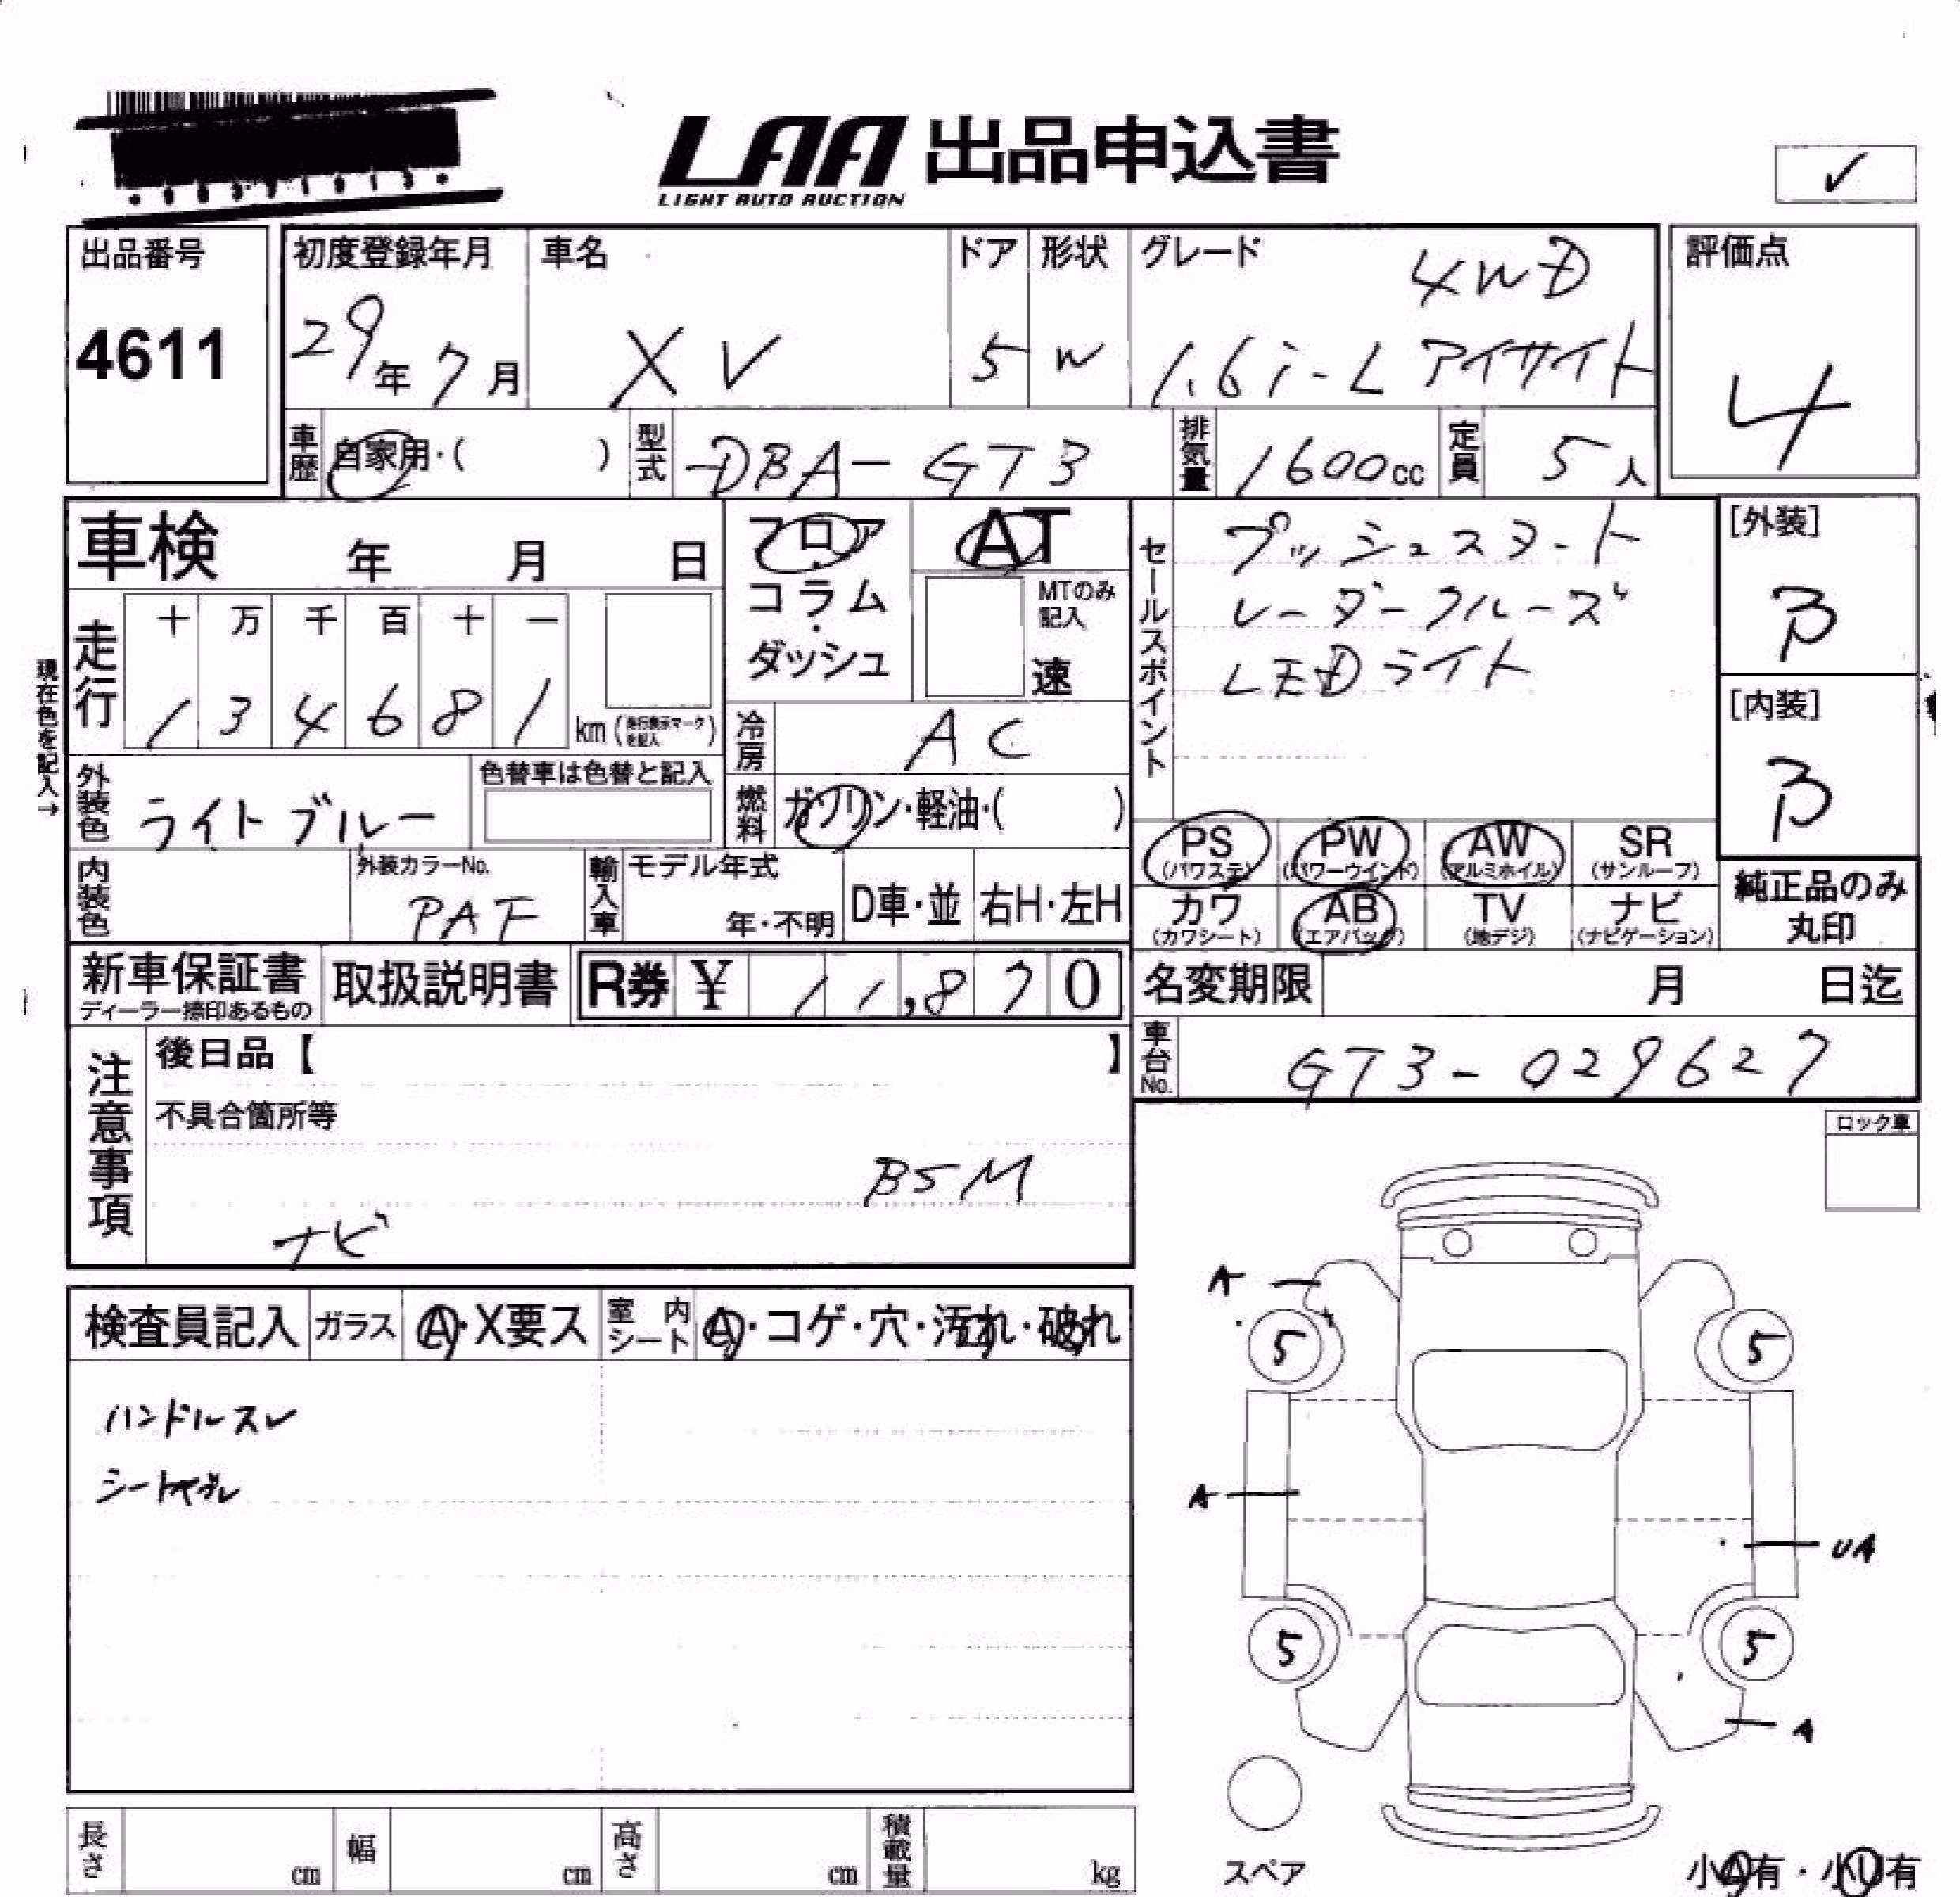 LAA 出品申込書
LIGHT AUTO AUCTION
✓
出品番号
4611
初度登録年月
29年 7月
車名
XV
ドア
5
形状
W
グレード
4WD
1.6i-L アイサイト
評価点
4
車歴
自家用・( )
型式
DBA-GT3
排気量
1600cc
定員
5人
車検 年 月 日
フロア
・
コラム
・
ダッシュ
AT
MTのみ
記入
速
セールスポイント
プッシュスタート
レーダークルーズ
LEDライト
[外装]
B
[内装]
B
現在色を記入→
走行
十 万 千 百 十 一
1 3 4 6 8 1
km (走行表示マークを記入)
冷房
AC
外装色
ライトブルー
色替車は色替と記入
燃料
ガソリン・軽油・( )
PS
(パワステ)
PW
(パワーウインド)
AW
(アルミホイル)
SR
(サンルーフ)
カワ
(カワシート)
AB
(エアバッグ)
TV
(地デジ)
ナビ
(ナビゲーション)
純正品のみ
丸印
内装色
外装カラーNo.
PAF
輸入車
モデル年式
年・不明
D車・並
右H・左H
新車保証書
ディーラー捺印あるもの
取扱説明書
R券 ¥ 11,870
名変期限 月 日迄
車台No.
GT3-029627
注意事項
後日品【 】
不具合箇所等
BSM
ナビ
ロック車
検査員記入
ガラス
A・X要ス
室内シート
A・コゲ・穴・汚れ・破れ
ハンドルスレ
A
5
5
A
UA
5
5
A
スペア
小A有・小U有
長さ cm
幅 cm
高さ cm
積載量 kg